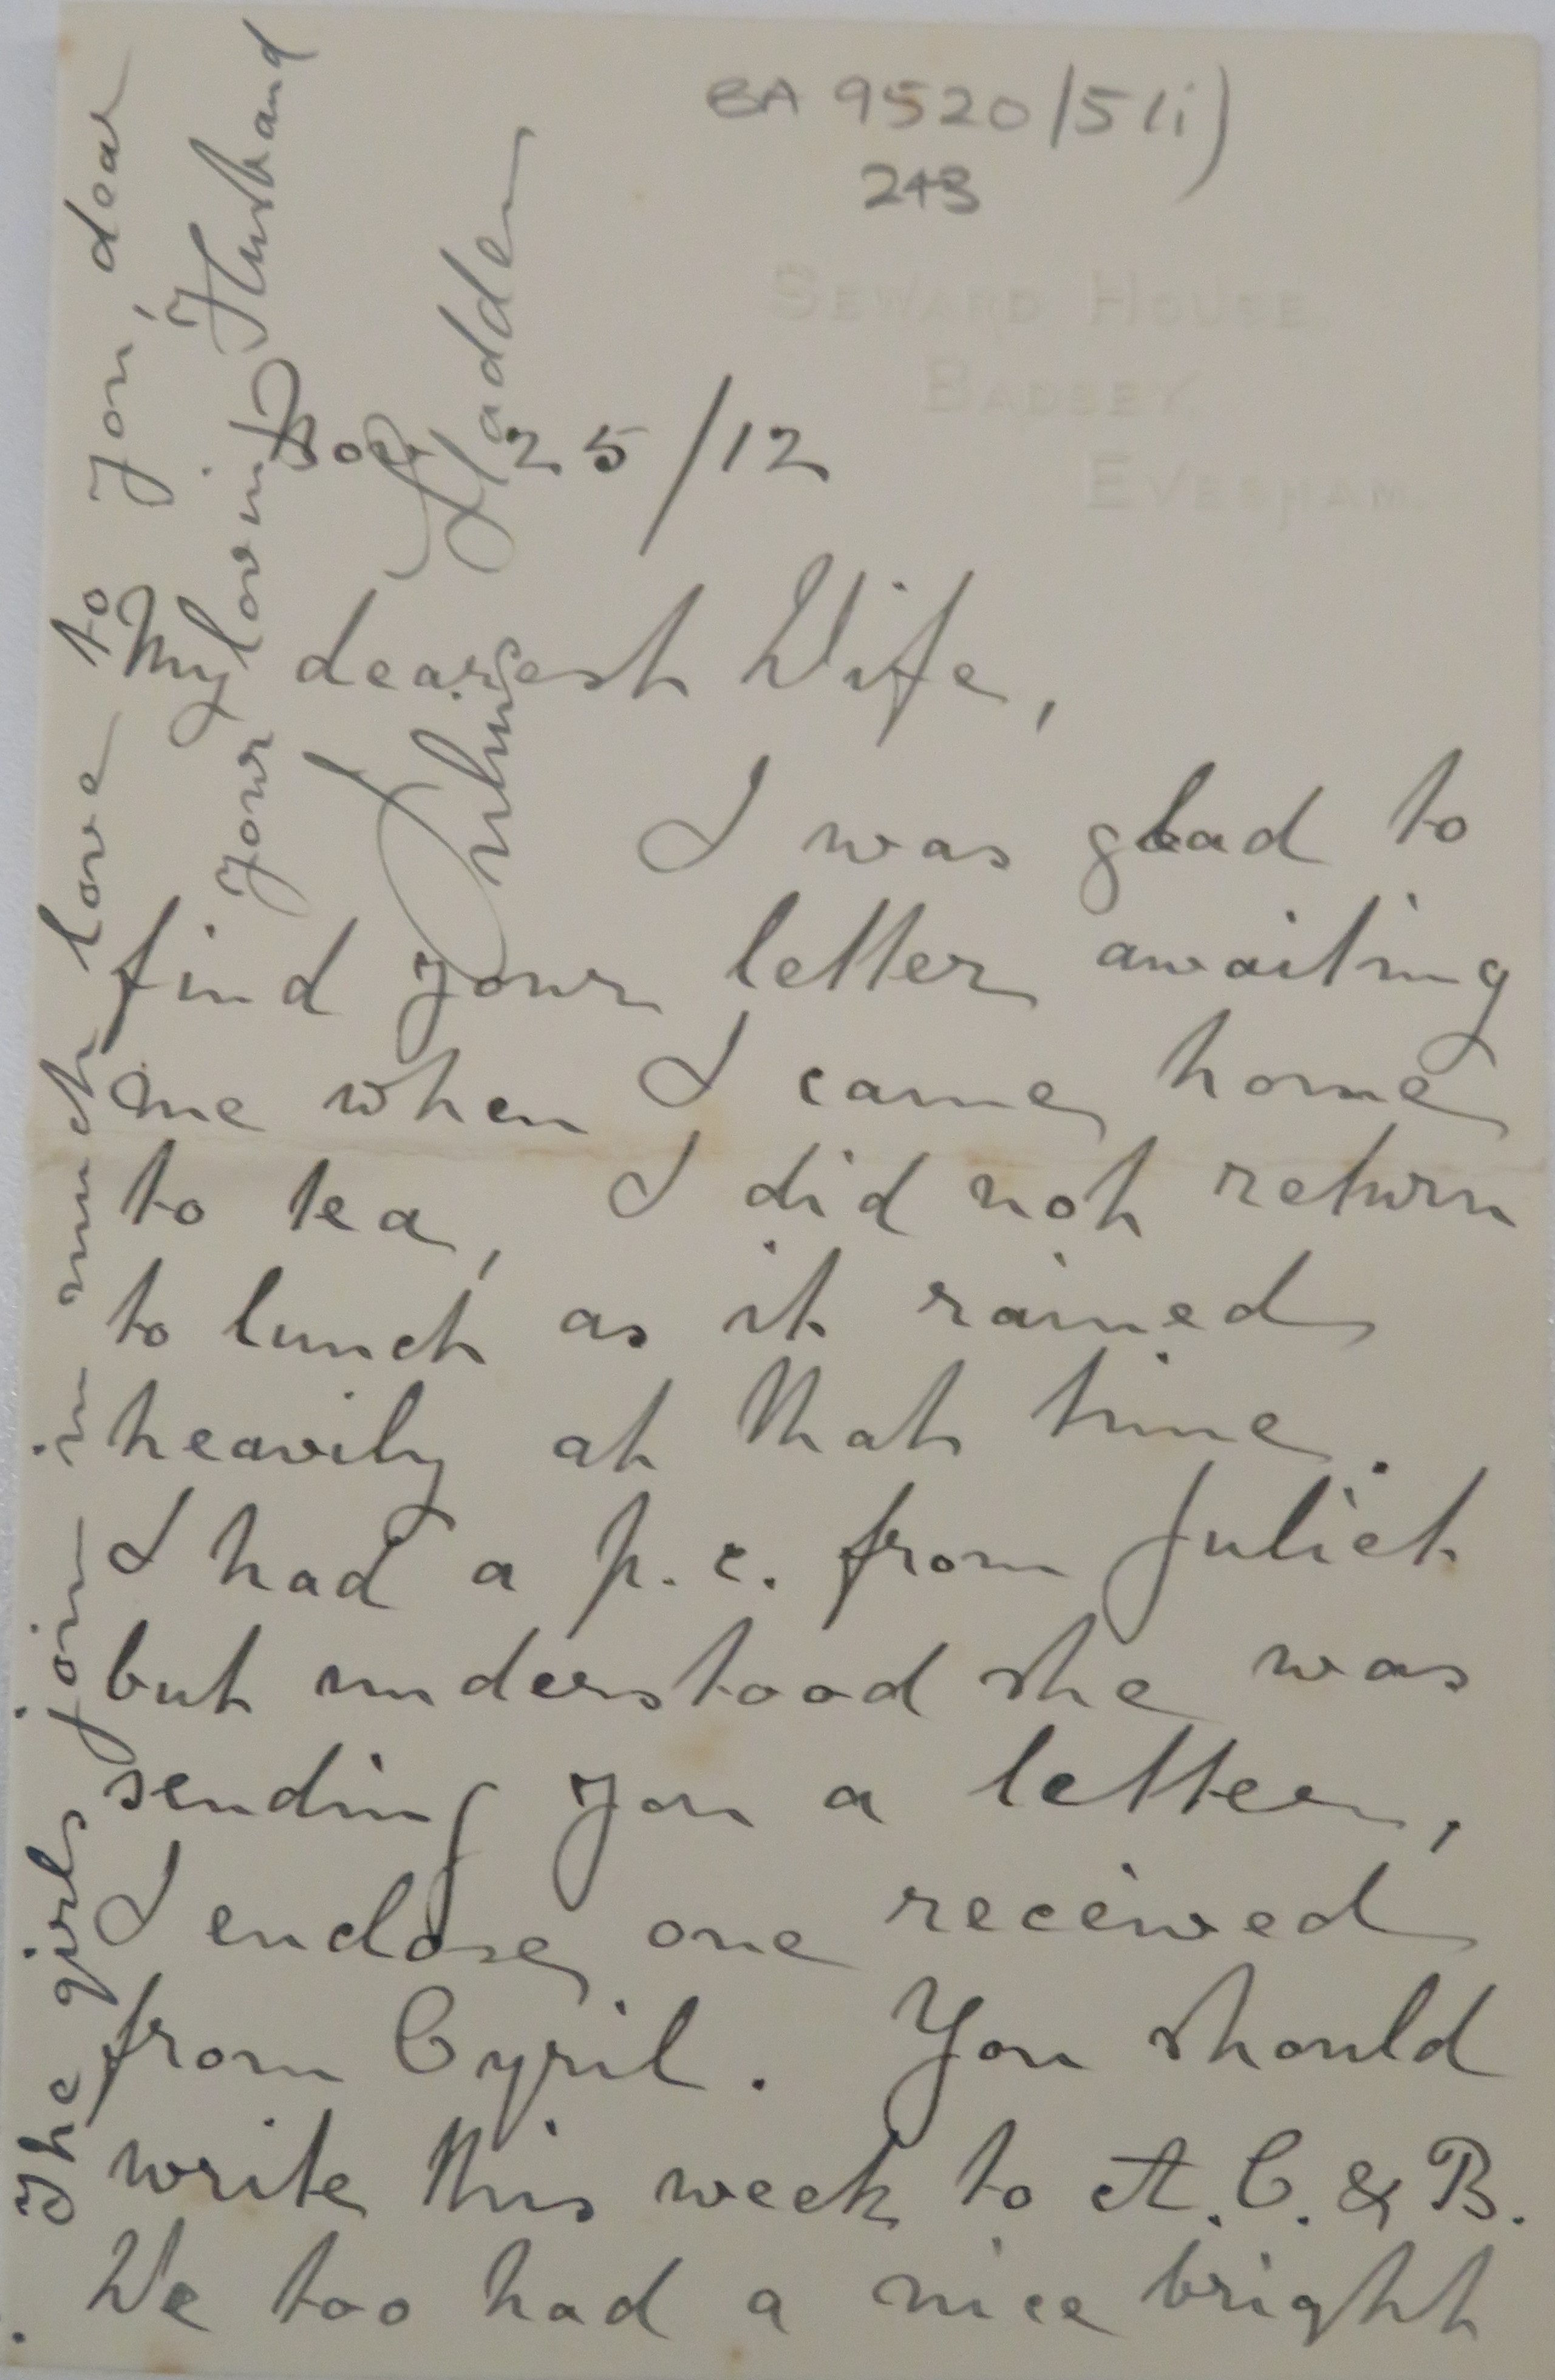 BA 9520/5(i)
243
SEWARD HOUSE,
BADSEY,
EVESHAM.
Nov 25/12
My dearest Wife,
I was glad to
find your letter awaiting
me when I came home
to tea, I did not return
to lunch as it rained
heavily at that time.
I had a p.c. from Juliet
but understood she was
sending you a letter,
I enclose one received
from Cyril. You should
write this week to A. C. & B.
We too had a nice bright
The girls join in much love to you, dear
Your loving Husband
Julius Sladden